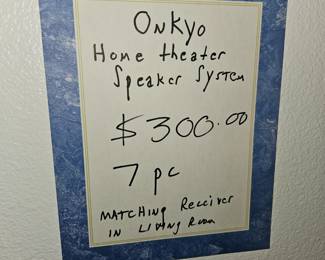 ONKYO
Home theater
Speaker System
$300.00
7 pc
MATCHING Receiver
IN LIVING ROOM